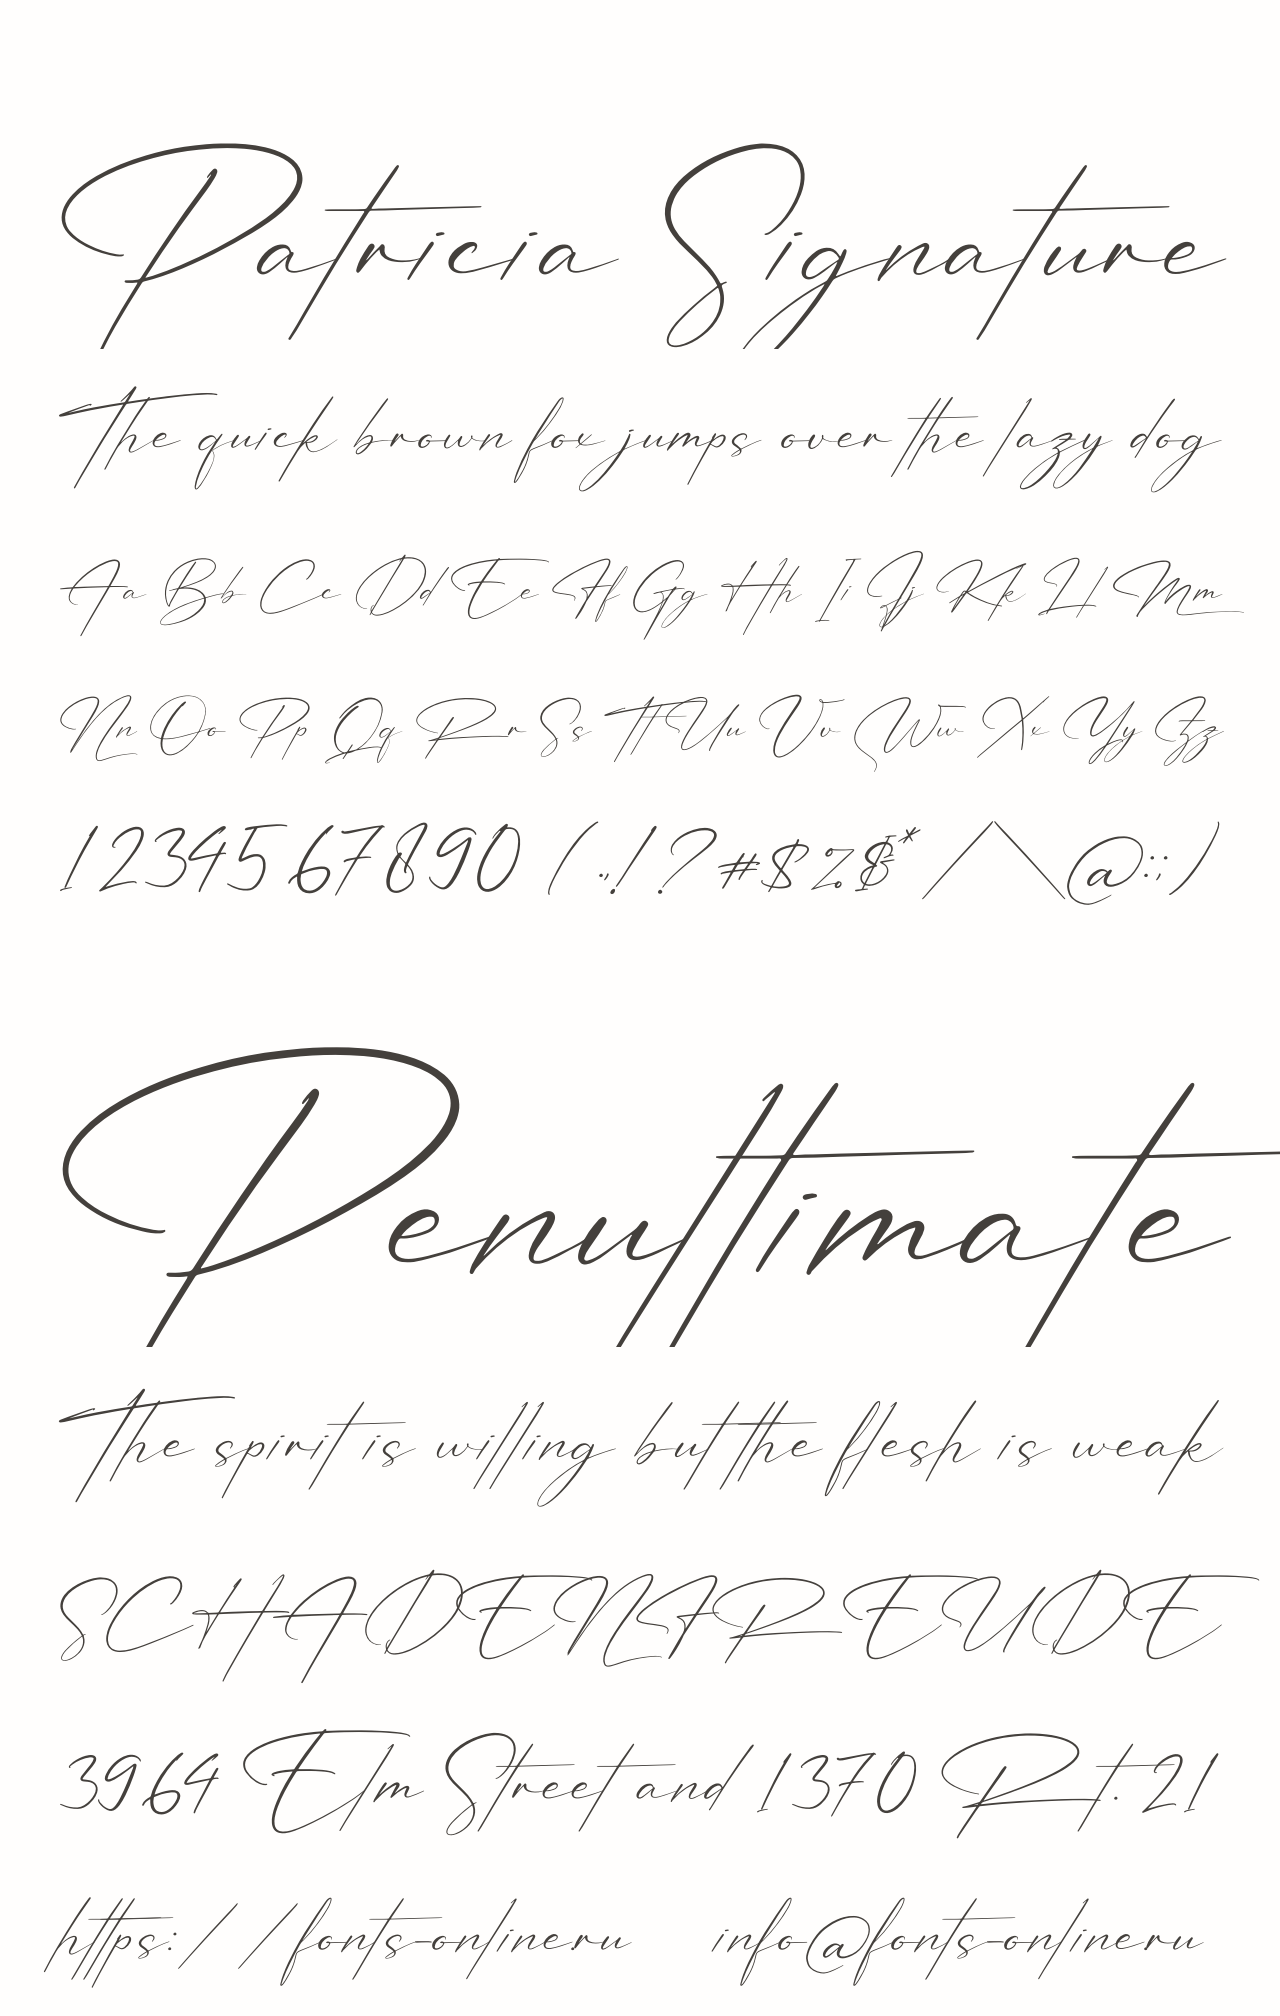 Patricia Signature
The quick brown fox jumps over the lazy dog
Aa Bb Cc Dd Ee Ff Gg Hh Ii Jj Kk Ll Mm
Nn Oo Pp Qq Rr Ss Tt Uu Vv Ww Xx Yy Zz
1234567890 (.,!?#$%&*/\@:;)
Penultimate
The spirit is willing but the flesh is weak
SCHADENFREUDE
3964 Elm Street and 1370 Rt. 21
https://fonts-online.ru info@fonts-online.ru